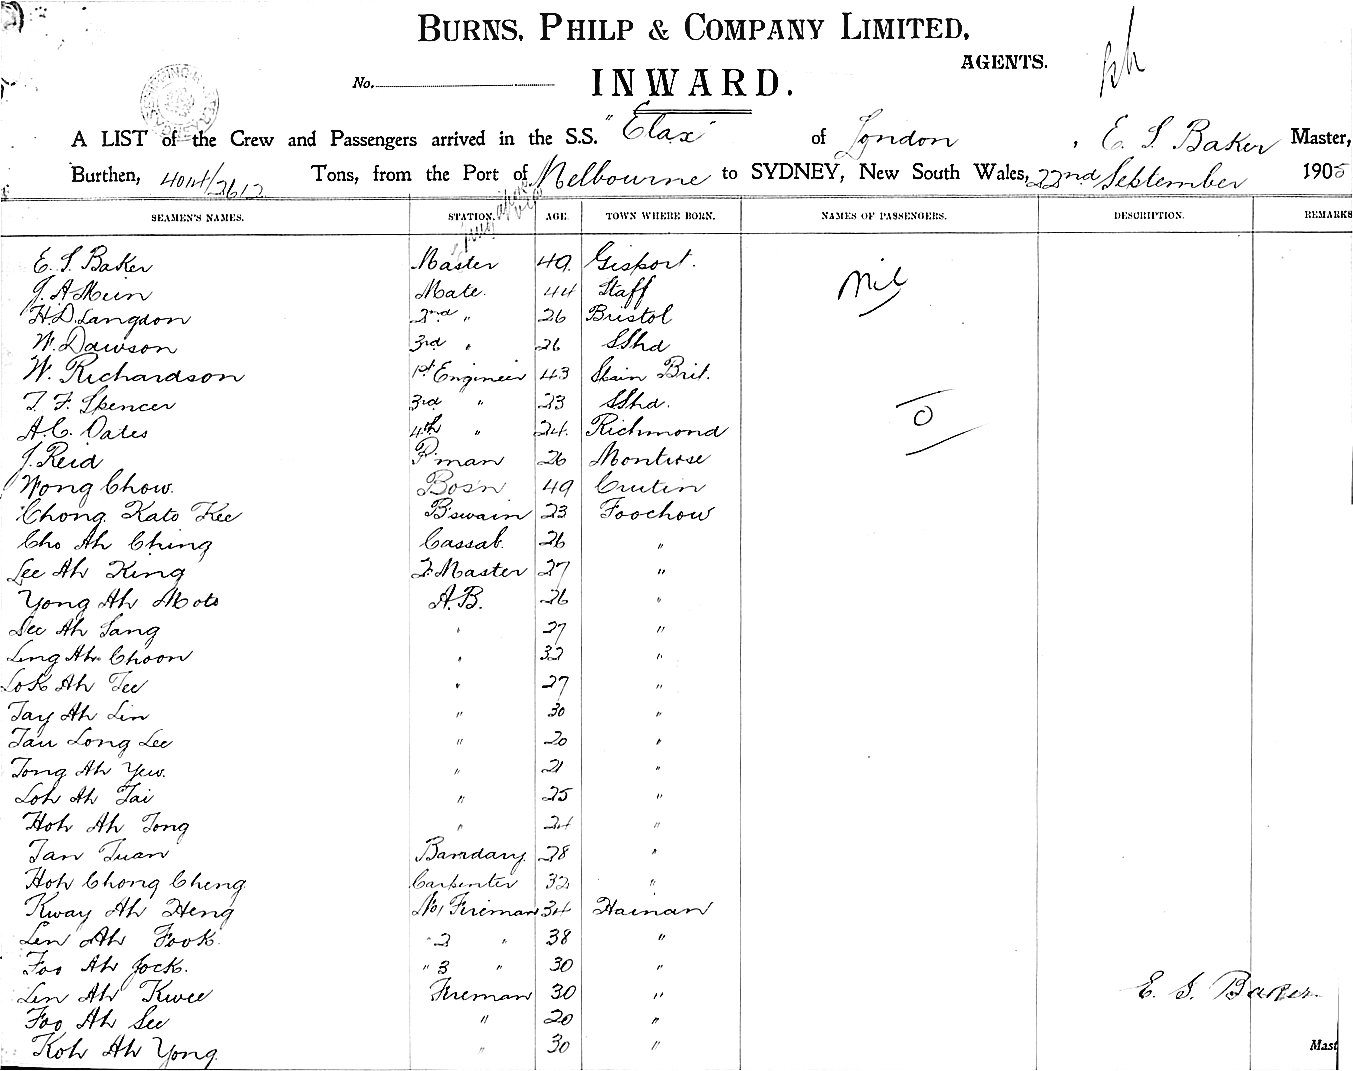 BURNS, PHILP & COMPANY LIMITED,
AGENTS.
No. INWARD.
A LIST of the Crew and Passengers arrived in the S.S. "Elax" of London, E. S. Baker Master,
Burthen, 4014/2612 Tons, from the Port of Melbourne to SYDNEY, New South Wales, 22nd September 1905
SEAMEN'S NAMES. STATION. AGE. TOWN WHERE BORN. NAMES OF PASSENGERS. DESCRIPTION. REMARKS
E. S. Baker Master 49 Gosport.
J. A Mein Mate. 44 Staff nil
H. D. Langdon 2nd " 26 Bristol
W. Dawson 3rd " 26 SShd
W. Richardson 1st Engineer 43 Brit.
T. F. Spencer 3rd " 23 SShd.
A. C. Oates 4th " 24 Richmond
J. Reid P'man 26 Montrose
Wong Chow. Bosn 49
Chong Kato Kee B'swain 23 Foochow
Cho Ah Ching Cassab. 26 "
Lee Ah King Q. Master 27 "
Yong Ah Moto A.B. 26 "
Lee Ah Sang " 27 "
Ling Ah Choon " 32 "
Lok Ah Tee " 27 "
Tay Ah Lin " 30 "
Tau Long Lee " 20 "
Tong Ah Yew. " 21 "
Loh Ah Tai " 25 "
Hoh Ah Tong " 24 "
Tan Tuan Bandary 28 "
Hoh Chong Cheng Carpenter 32 "
Kway Ah Heng No 1 Fireman 34 Hainan
Lin Ah Fook. " 2 " 38 "
Foo Ah Jock. " 3 " 30 "
Lin Ah Kwee Fireman 30 " E. S. Baker
Foo Ah See " 20 "
Koh Ah Yong " 30 " Mast